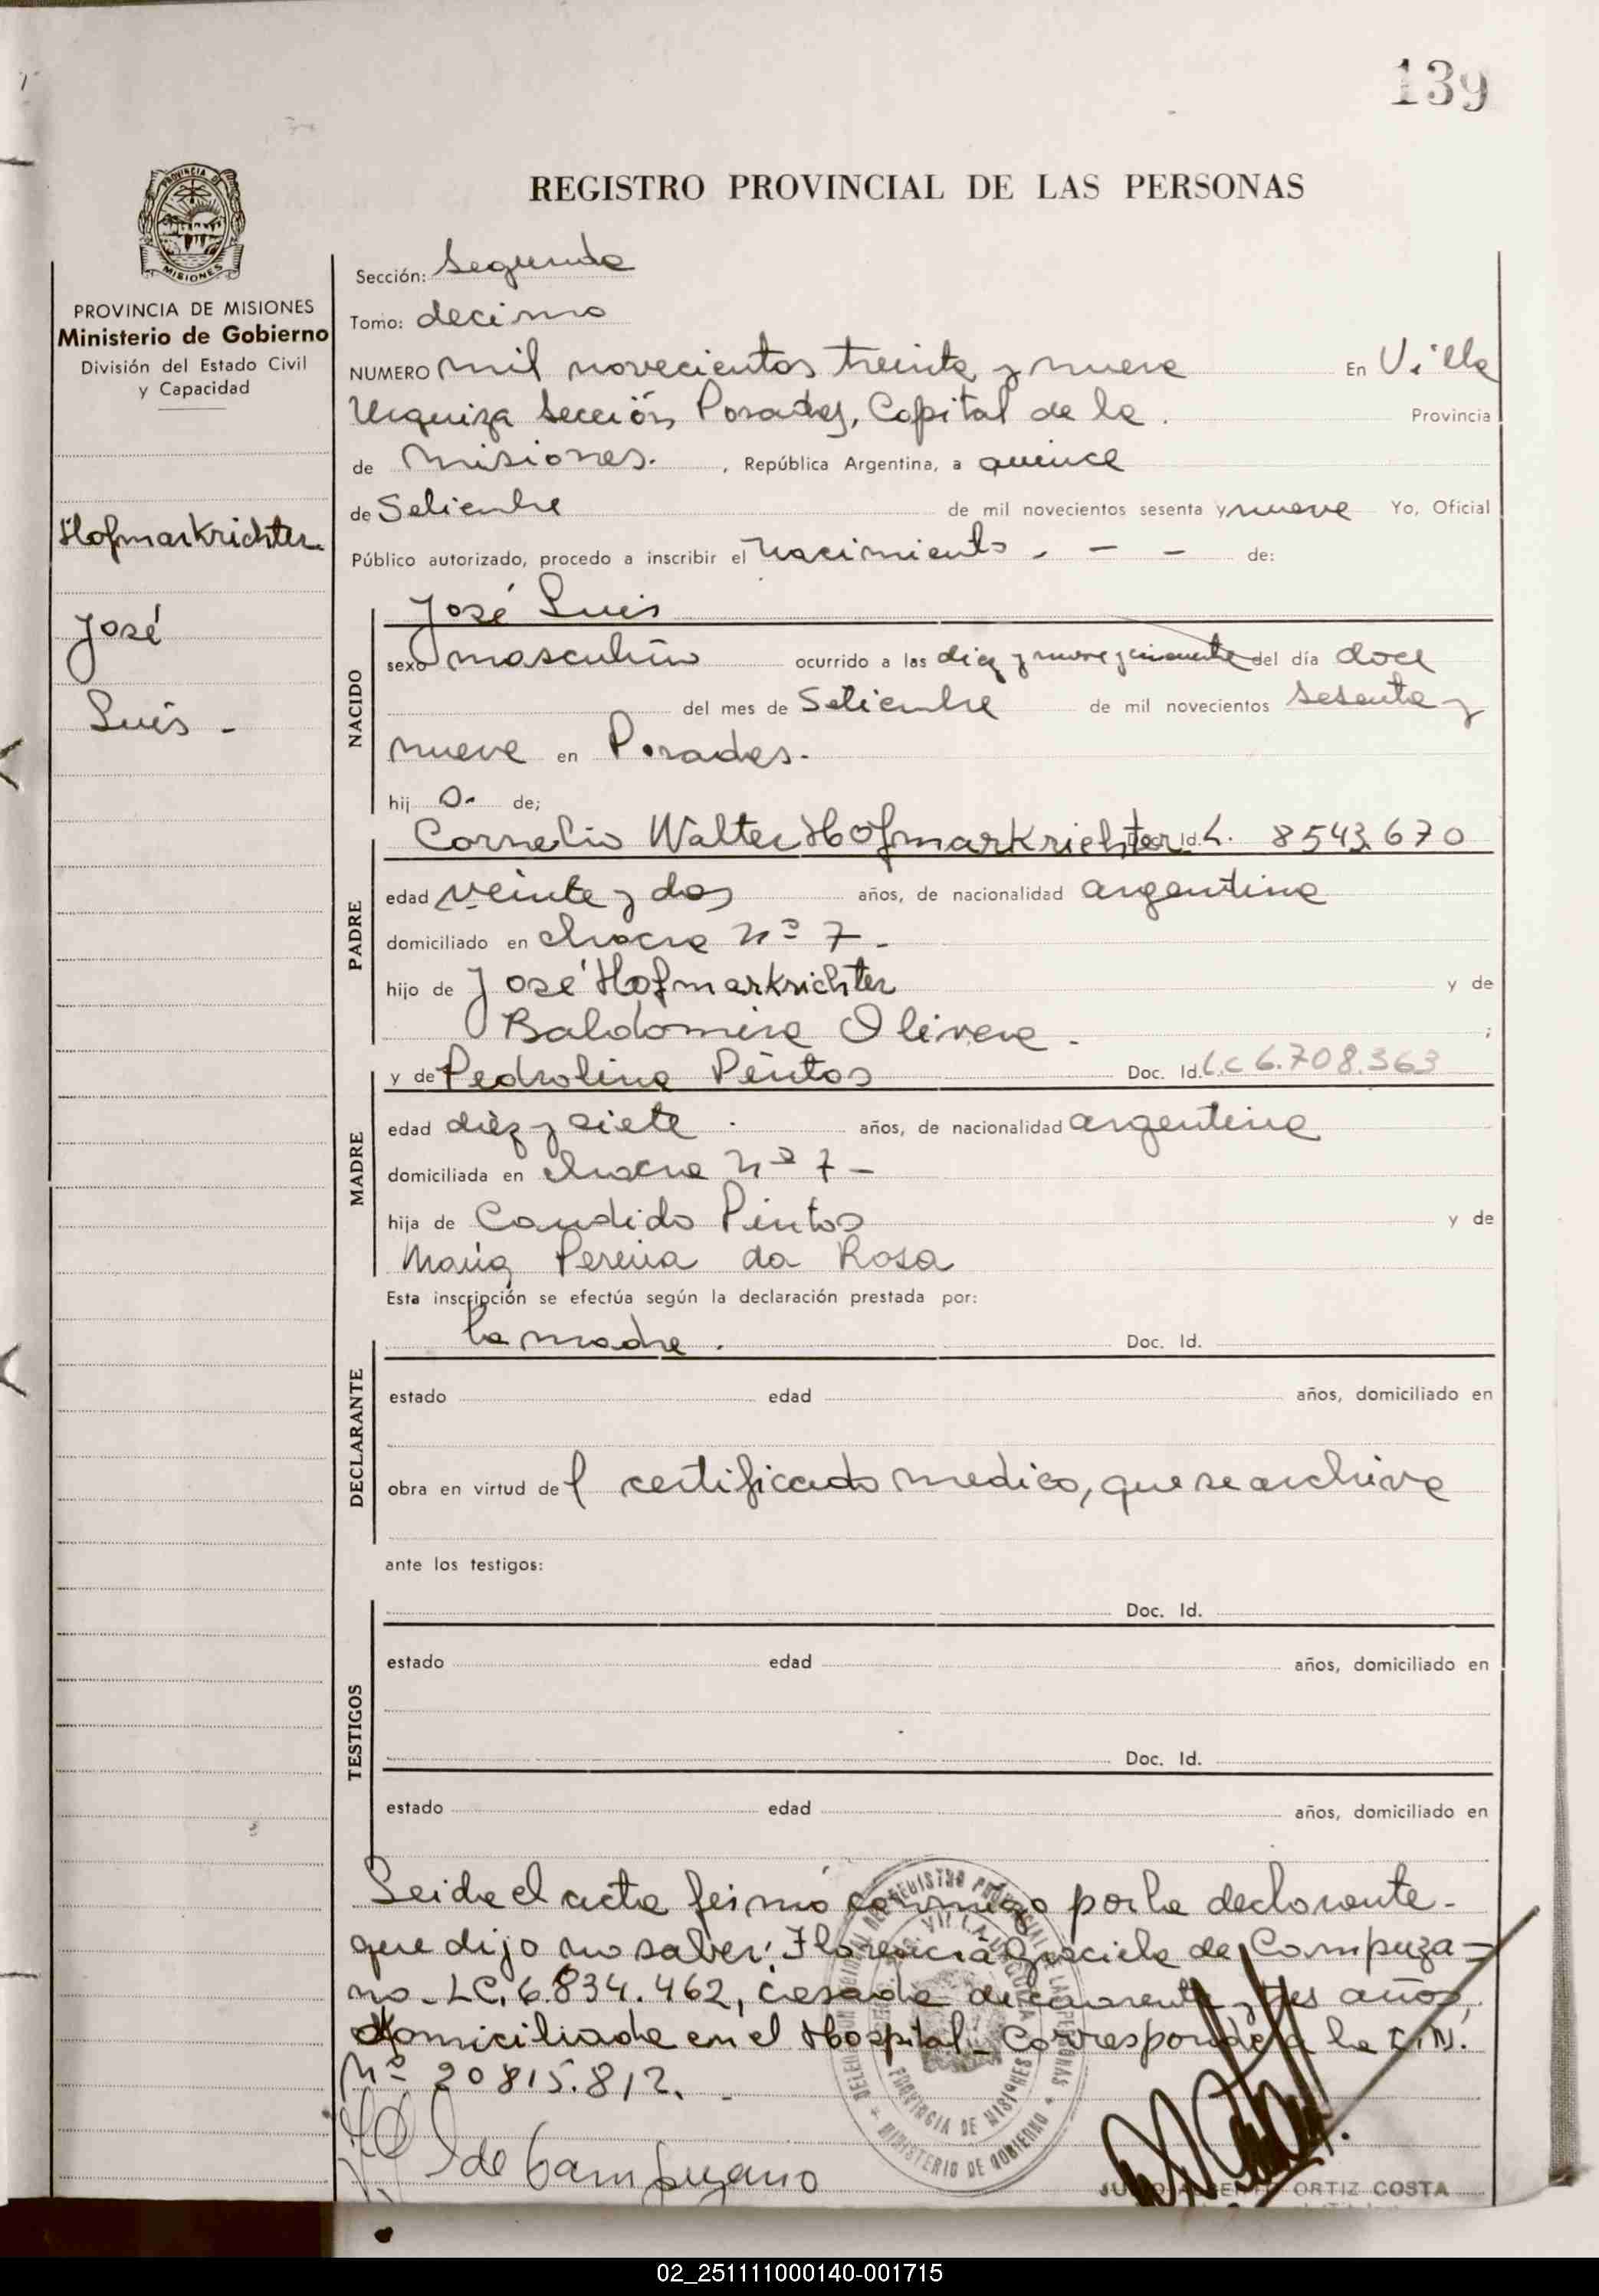 139
REGISTRO PROVINCIAL DE LAS PERSONAS
PROVINCIA DE MISIONES
Ministerio de Gobierno
División del Estado Civil
y Capacidad
Hofmarkrichter
José
Luis -
Sección: Segunda
Tomo: decimo
NUMERO mil novecientos treinta y nueve En Villa
Urquiza Sección Posadas, Capital de la . Provincia
de Misiones. , República Argentina, a quince
de Setiembre de mil novecientos sesenta y nueve Yo, Oficial
Público autorizado, procedo a inscribir el nacimiento - - - de:
NACIDO
José Luis
sexo masculino ocurrido a las diez y nueve y cincuenta del día doce
del mes de Setiembre de mil novecientos sesenta y
nueve en Posadas.
hij o. de;
PADRE
Cornelio Walter Hofmarkrichter Id. L. 8543.670
edad veinte y dos años, de nacionalidad argentina
domiciliado en chacra nº 7 -
hijo de José Hofmarkrichter y de
Baldomira Olivera . ;
MADRE
y de Pedrolina Pintos Doc. Id. L.C 6.708.363
edad diez y siete . años, de nacionalidad argentina
domiciliada en chacra nº 7 -
hija de Candido Pintos y de
María Pereira da Rosa
Esta inscripción se efectúa según la declaración prestada por:
DECLARANTE
la madre . Doc. Id.
estado edad años, domiciliado en
obra en virtud del certificado medico, que se archiva
ante los testigos:
TESTIGOS
Doc. Id.
estado edad años, domiciliado en
Doc. Id.
estado edad años, domiciliado en
Leida el acta firmó conmigo por la declarante -
que dijo no saber: Florencia Graciela de Campuza-
no - LC. 6.834.462, casada de cuarenta y tres años,
domiciliada en el Hospital - Corresponde a la L.M.
Nº 20815.812. -
de Campuzano
REGISTRO PROVINCIAL DE LAS PERSONAS
VILLA URQUIZA
PROVINCIA DE MISIONES
MINISTERIO DE GOBIERNO
ORTIZ COSTA
02_251111000140-001715